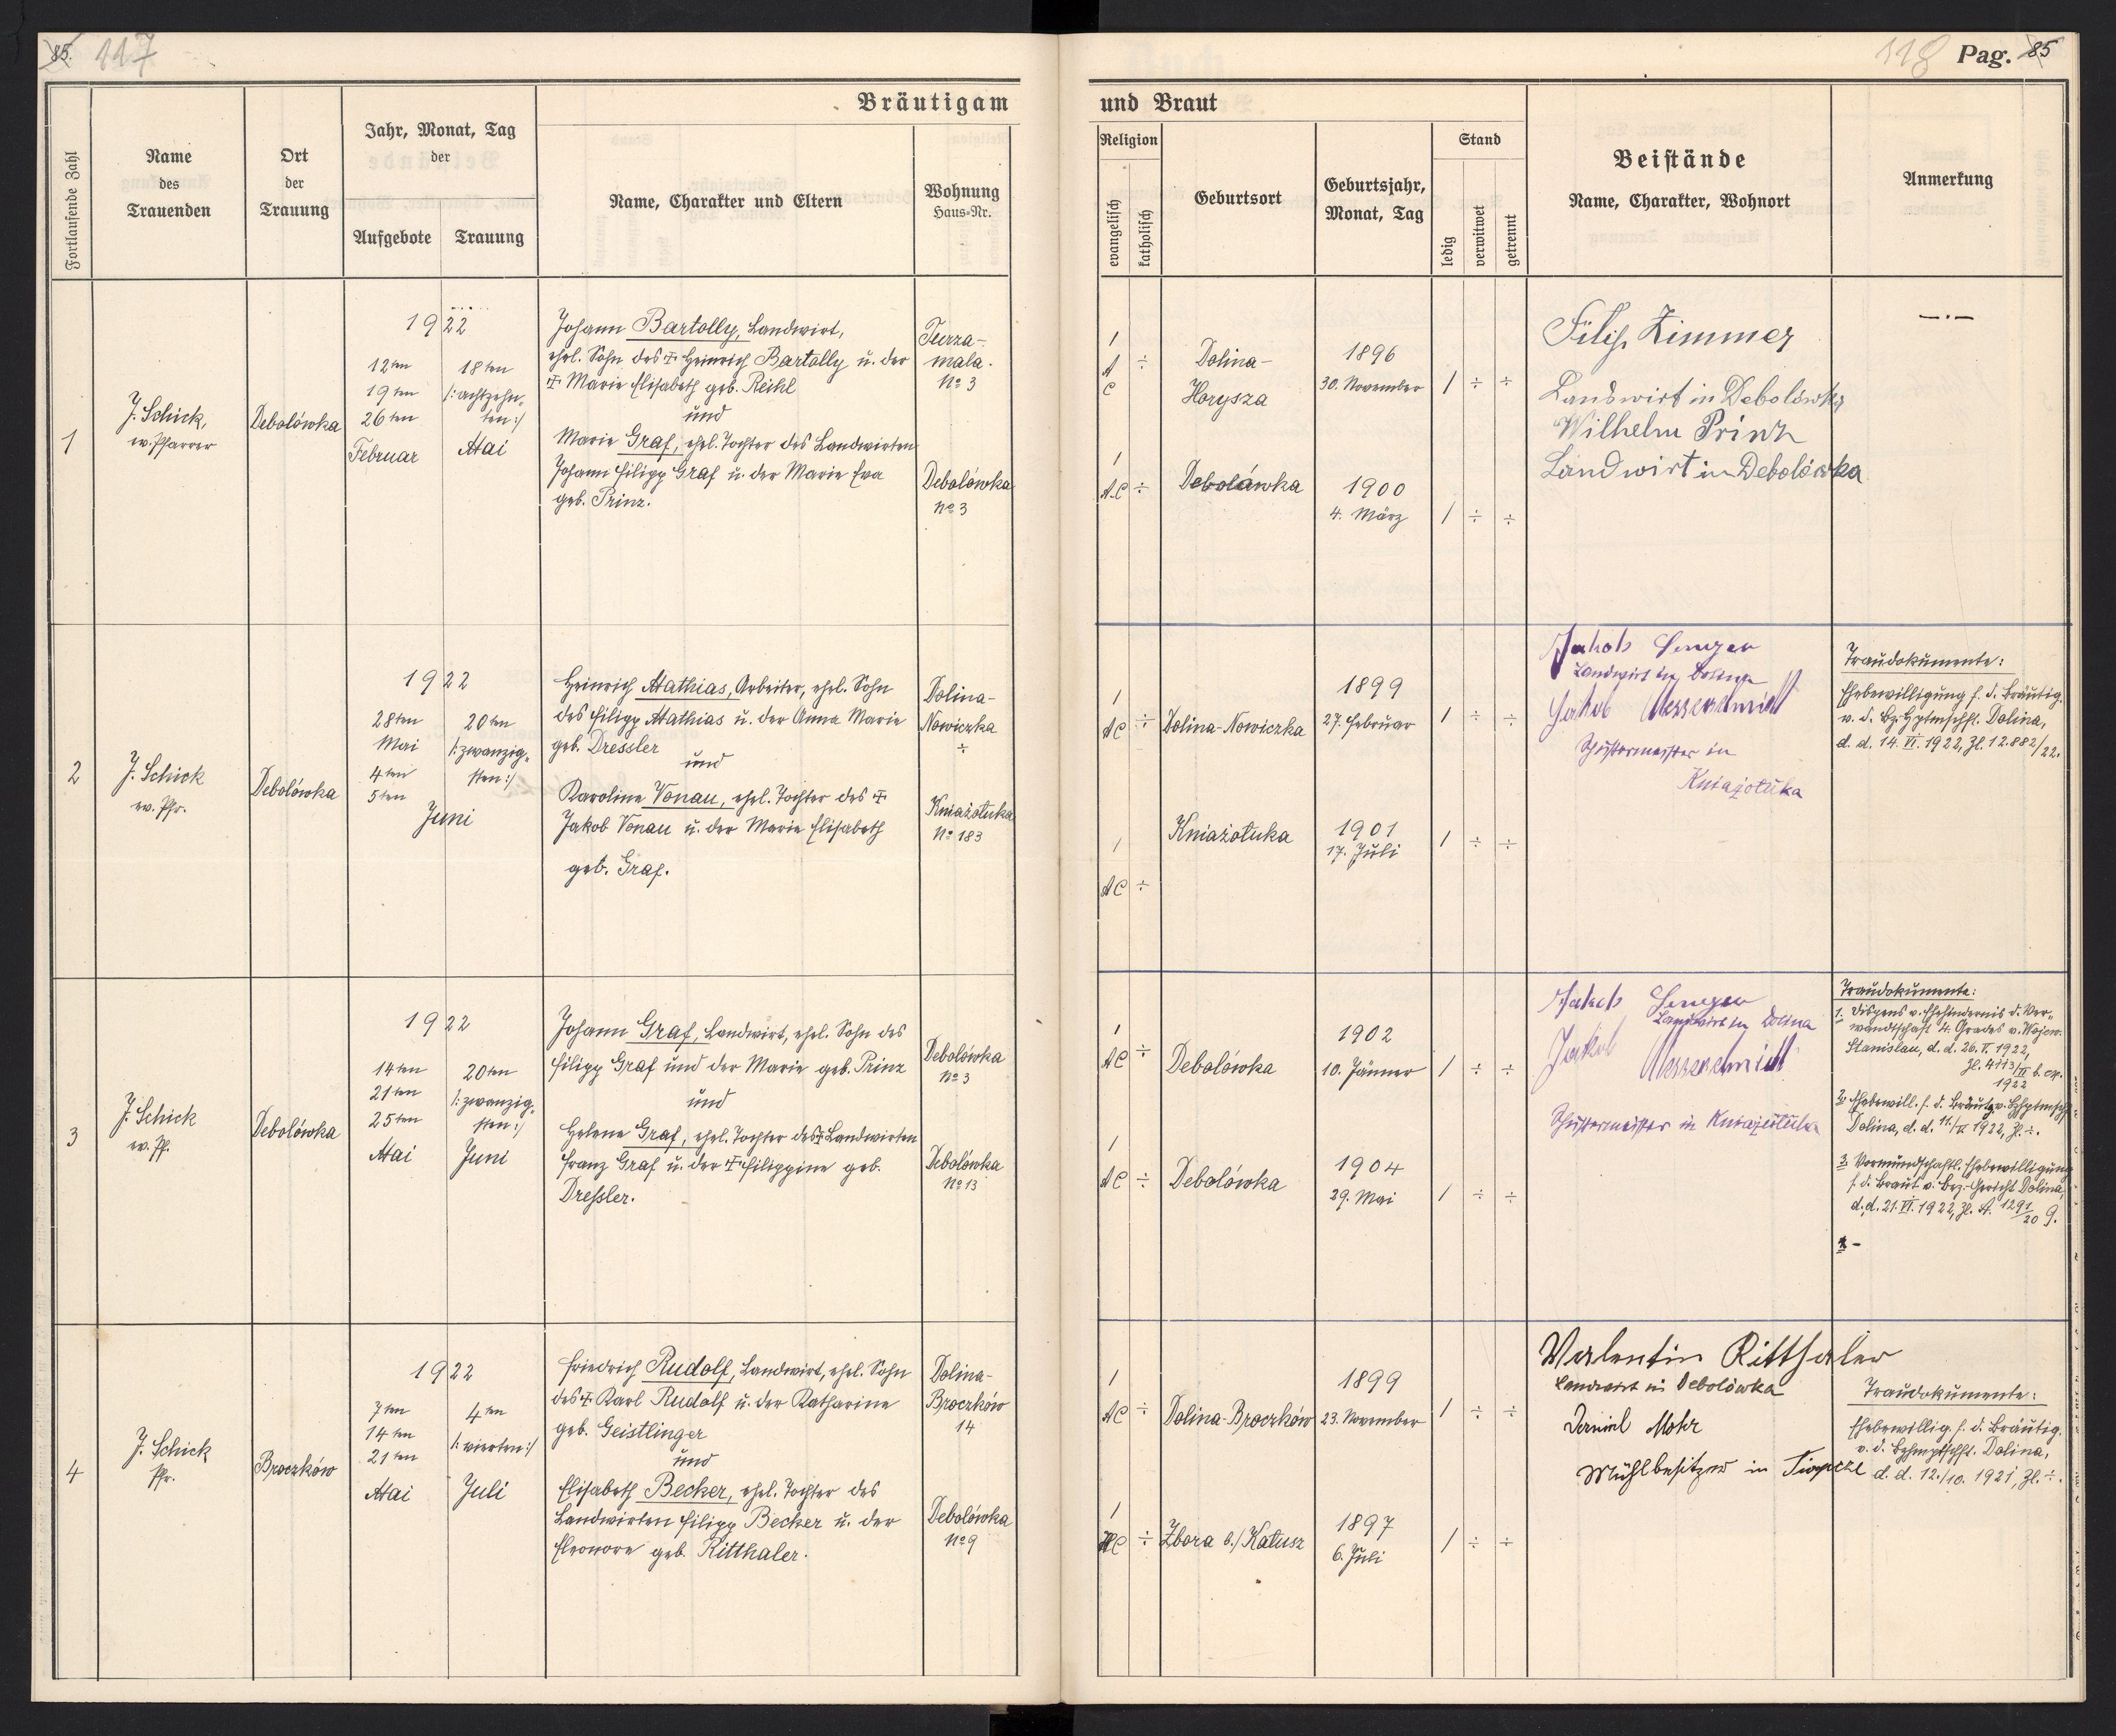 85. 117
Bräutigam
Fortlaufende Zahl
Name
des
Trauenden
Ort
der
Trauung
Jahr, Monat, Tag
der
Aufgebote
Trauung
Name, Charakter und Eltern
Wohnung
Haus-Nr.
118 Pag. 85
und Braut
Religion
evangelisch
katholisch
Geburtsort
Geburtsjahr,
Monat, Tag
Stand
ledig
verwitwet
getrennt
Beistände
Name, Charakter, Wohnort
Anmerkung
1
J. Schick,
ev. Pfarrer
Debolówka
1922
12ten
19ten
26ten
Februar
18ten
/:achtzehn-
ten:/
Mai
Johann Bartolly, Landwirt,
ehel. Sohn des ✝ Heinrich Bartolly u. der
✝ Marie Elisabeth geb. Reihl
und
Marie Graf, ehel. Tochter des Landwirten
Johann Filipp Graf u. der Marie Eva
geb. Prinz.
Turza-
mala.
No 3
Debolówka
No 3
1
A
C
÷
Dolina-
Horysza
1896
30. November
1 ÷ ÷
1
AC ÷
Debolówka
1900
4. März
1 ÷ ÷
Filip Zimmer
Landwirt in Debolówka
Wilhelm Prinz
Landwirt in Debolówka
—·—
2
J. Schick
ev. Pfr.
Debolówka
1922
28ten
Mai
4ten
5ten
Juni
20ten
/:zwanzig-
sten:/
Heinrich Mathias, Arbeiter, ehel. Sohn
des Filipp Mathias u. der Anna Marie
geb. Dressler
und
Karoline Vonau, ehel. Tochter des ✝
Jakob Vonau u. der Marie Elisabeth
geb. Graf.
Dolina-
Nowiczka
÷
Kniażołuka
No 183
1
AC ÷
Dolina-Nowiczka
1899
27. Februar
1 ÷ ÷
1
AC ÷
Kniażołuka
1901
17. Juli
1 ÷ ÷
Jakob
Landwirt in Dolina
Jakob Messerschmidt
Schustermeister in
Kniażołuka
Traudokumente:
Ehebewilligung f. d. Bräutig.
v. d. Bz. Hptmschft. Dolina,
d. d. 14. VI. 1922, Zl. 12.882/22.
3
J. Schick
ev. Pf.
Debolówka
1922
14ten
21ten
25ten
Mai
20ten
/:zwanzig-
sten:/
Juni
Johann Graf, Landwirt, ehel. Sohn des
Filipp Graf und der Marie geb. Prinz
und
Helene Graf, ehel. Tochter des ✝ Landwirten
Franz Graf u. der ✝ Filippine geb.
Dreßler.
Debolówka
No 3
Debolówka
No 13
1
AC ÷
Debolówka
1902
10. Jänner
1 ÷ ÷
1
AC ÷
Debolówka
1904
29. Mai
1 ÷ ÷
Jakob
Landwirt in Dolina
Jakob Messerschmidt
Schustermeister in Kniażołuka
Traudokumente:
1. Dispens v. Ehehindernis d. Ver-
wandtschaft 4. Grades v. Wojew.
Stanislau, d. d. 26. V. 1922,
Zl. 4113/
1922
2. Ehebewill. f. d. Bräutg. v. Bzhptmsch.
Dolina, d. d. 1922, Zl. ÷.
3. Vormundschaftl. Ehebewilligung
f. d. Braut v. Bez.-Gericht Dolina,
d. d. 21. VI. 1922, Zl. A. 1291/20 9.
4
J. Schick
Pfr.
Broczków
1922
7ten
14ten
21ten
Mai
4ten
/:vierten:/
Juli
Friedrich Rudolf, Landwirt, ehel. Sohn
des ✝ Karl Rudolf u. der Katharine
geb. Geistlinger
und
Elisabeth Becker, ehel. Tochter des
Landwirten Filipp Becker u. der
Eleonore geb. Ritthaler.
Dolina-
Broczków
14
Debolówka
No 9
1
AC ÷
Dolina-Broczków
1899
23. November
1 ÷ ÷
1
HC ÷
Zbora b./Kałusz
1897
6. Juli
1 ÷ ÷
Valentin Ritthaler
Landwirt in Debolówka
Daniel Mohr
Mühlbesitzer in
Traudokumente:
Ehebewillig. f. d. Bräutig.
v. d. Bzhmptschft. Dolina,
d. d. 12./10. 1921, Zl. ÷.